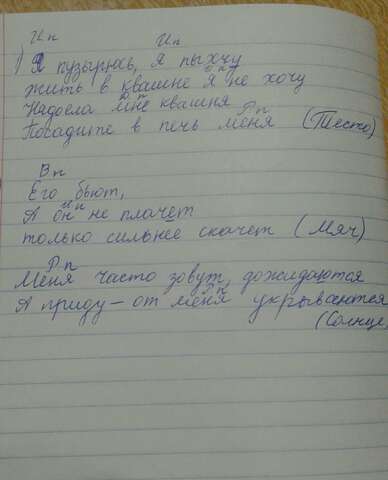 Ип Ип
1) Я пузырюсь, Я пыхчу
Ип
жить в квашне я не хочу
Дп
Надоела мне квашня
Рп
Посадите в печь меня (Тесто)
Вп
Его бьют,
Ип
А он не плачет
только сильнее скачет (Мяч)
Рп
Меня часто зовут, дожидаются
Рп
А приду – от меня укрываются
(Солнце,